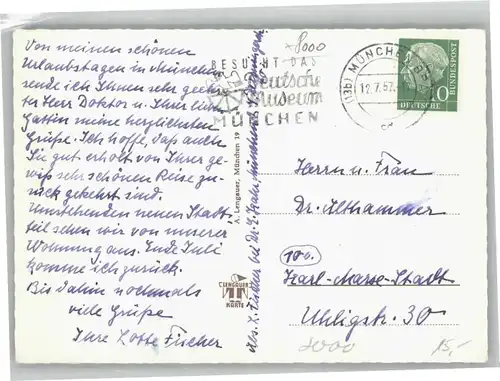 Von meinen schönen
Urlaubstagen in München
sende ich Ihnen sehr geehr-
ter Herr Doktor u. Ihrer lieben
Gattin meine herzlichsten
Grüße. Ich hoffe, daß auch
Sie gut erholt von Ihrer ge-
wiß sehr schönen Reise zu-
rück gekehrt sind.
Umstehenden neuen Stadt-
teil sehen wir von unserer
Wohnung aus. Ende Juli
komme ich zurück.
Bis dahin nochmals
viele Grüße
Ihre Lotte Fischer
Abs. L. Fischer bei Dr. E.
A. Lengauer, München 19
LENGAUER
KARTE
8000
BESUCHT DAS
Deutsche
Museum
MÜNCHEN
(13b) MÜNCHEN
12.7.57
DEUTSCHE
BUNDESPOST
10
Herrn u. Frau
Dr. Althammer
10b.
Karl-Marx-Stadt
Uhligstr. 30
15,-